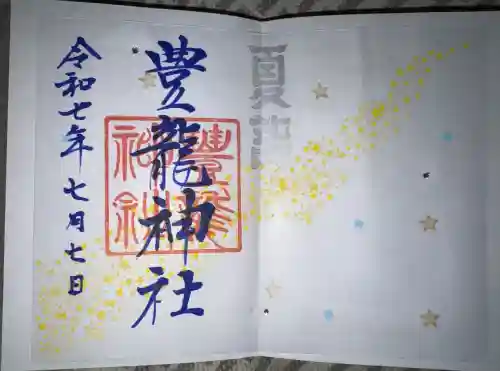 夏詣
豊龍神社
豊龍神社
令和七年七月七日